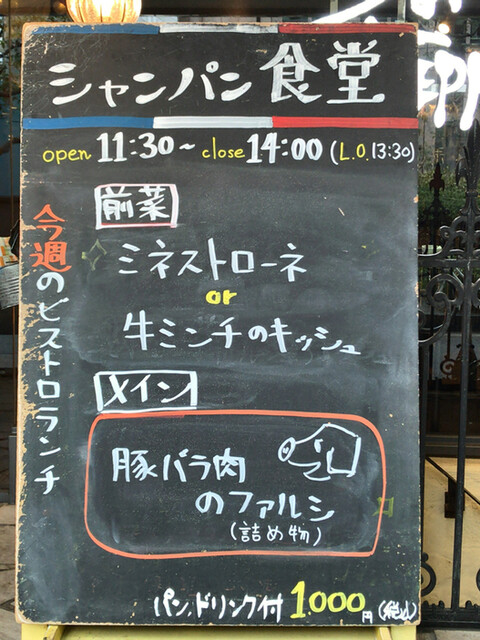 シャンパン食堂
open 11:30~ close 14:00 (L.O.13:30)
今週のビストロランチ
前菜
ミネストローネ
or
牛ミンチのキッシュ
メイン
豚バラ肉
のファルシ
(詰め物)
パン、ドリンク付 1000円(税込)